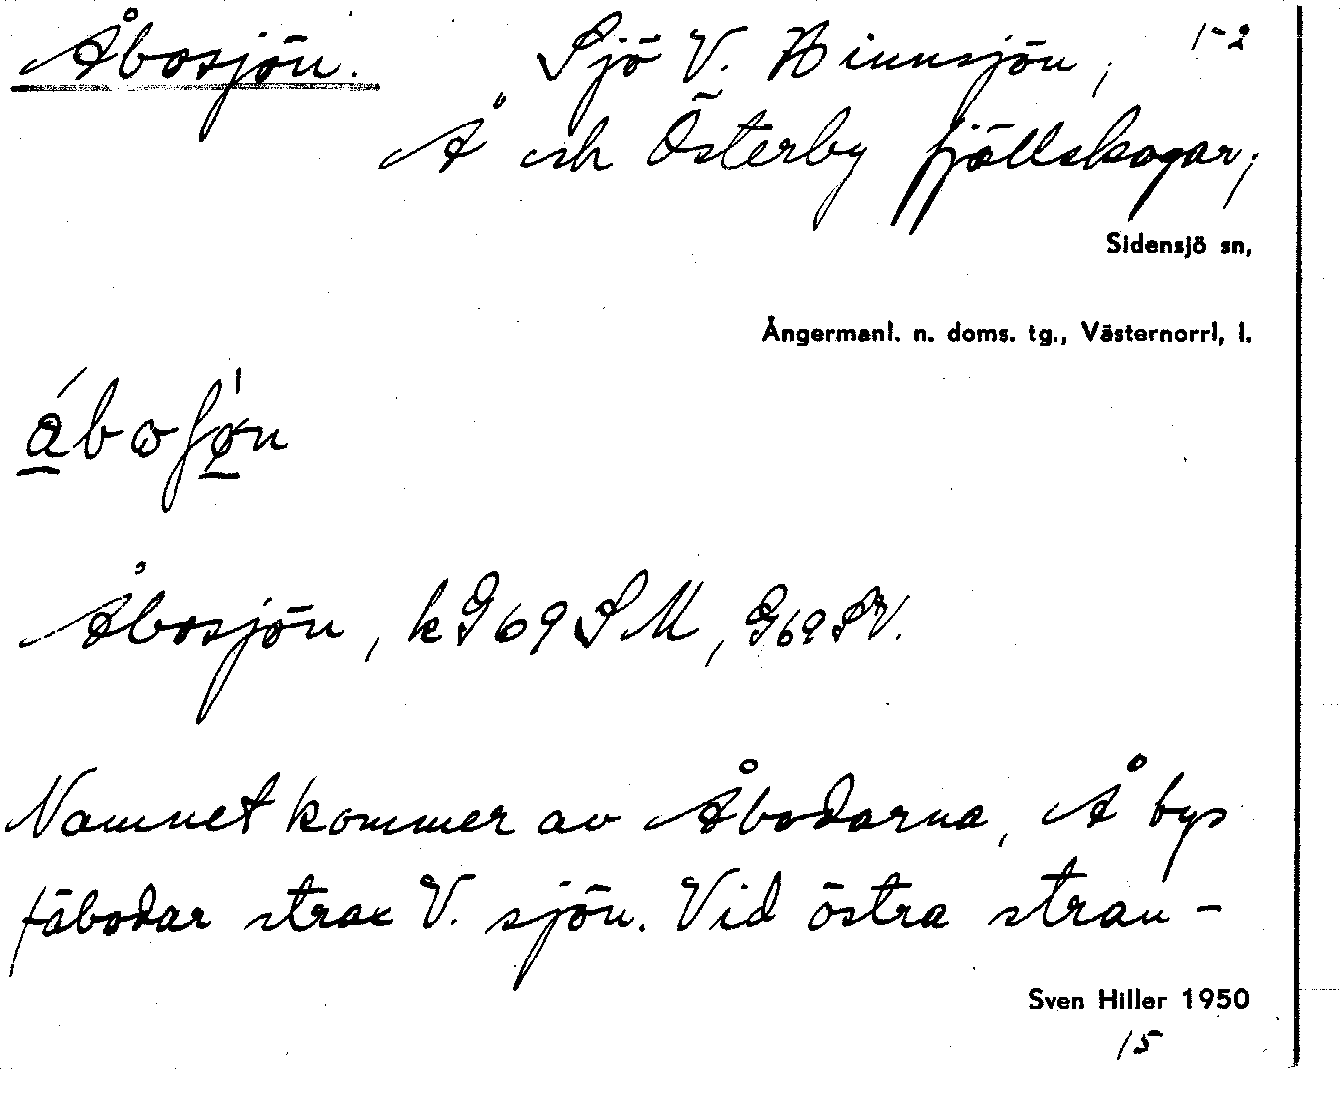 Åbosjön. Sjö V. Hinnsjön, 1-2
Å och Österby fjällskogar,
Sidensjö sn,
Ångermanl. n. doms. tg., Västernorrl, l.
Åbosjön, k G69SM, G69SV.
Namnet kommer av Åbodarna, Å bys
fäbodar strax V. sjön. Vid östra stran-
Sven Hiller 1950
15